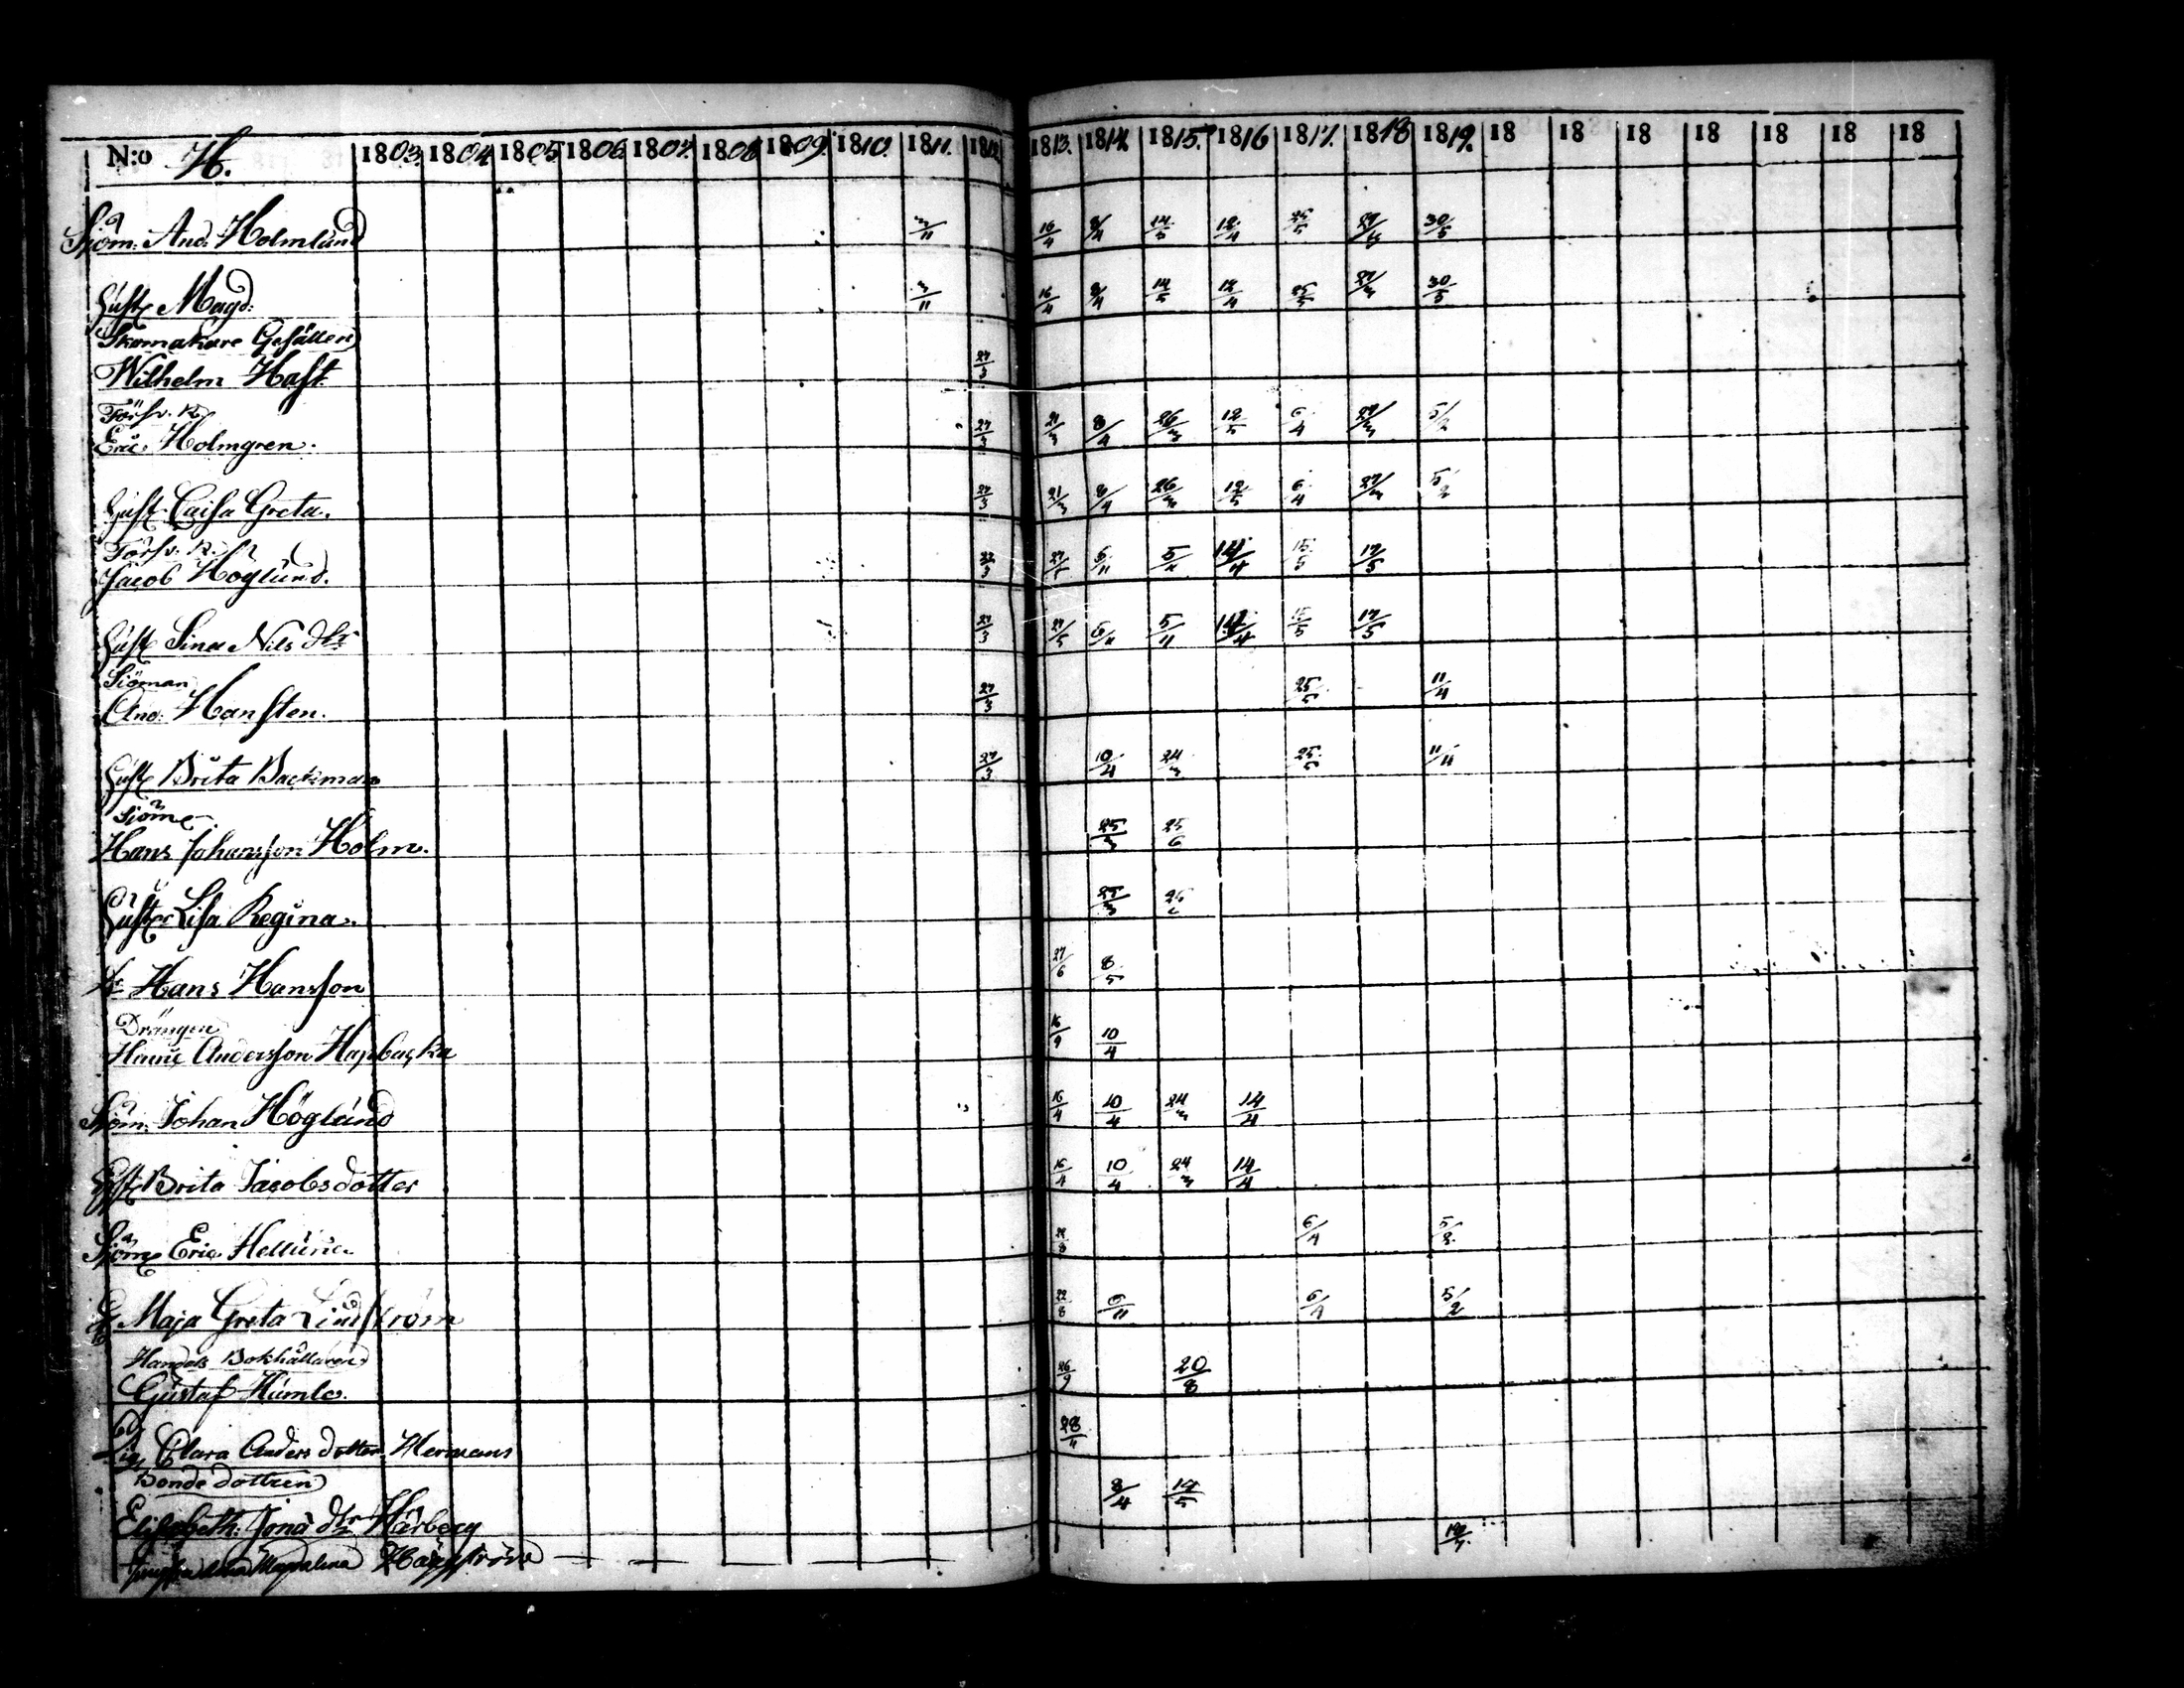 N:o H. 1803. 1804. 1805 1806. 1807. 1808 1809. 1810. 1811. 1812. 1813. 1814. 1815. 1816 1817. 1818 1819. 18 18 18 18 18 18 18
Sjöm: And: Holmlund 3/11 16/4 8/4 14/5 12/4 25/5 27/3 30/5
Hust Magd: 3/11 16/4 8/4 14/5 12/4 25/5 27/3 30/5
Skomakare Gesällen
Wilhelm Haft. 27/3
Försv. K.
Eric Holmgren. 27/3 21/3 8/4 26/3 12/5 6/4 27/3 5/2
Hust Caisa Greta. 27/3 21/3 8/4 26/3 12/5 6/4 27/3 5/2
Försv. K.
Jacob Höglund. 27/3 27/5 6/11 5/11 14/4 15/5 17/5
Hust Nils dtr 27/3 27/5 6/11 5/11 14/4 15/5 17/5
Siöman
And: Hansten. 27/3 25/5 11/4
Hust Brita Backman 27/3 10/4 24/3 25/5 11/4
Siöm
Hans Johansson Holm. 25/3 25/6
Hust Lisa Regina. 25/3 25/6
Hans Hansson 27/6 8/5
Drängen
Andersson 16/9 10/4
Sjöm: Johan Höglund 16/4 10/4 24/3 14/4
Hust Brita Jacobsdotter 16/4 10/4 24/3 14/4
Sjöm Eric 6/4 5/2
Maja Greta Lindström 22/8 6/11 6/4 5/2
Handels Bokhållaren
Gustaf Humle. 26/9 20/8
Clara Anders dotter Hermans 28/11
Bonde dottren
Elisabeth Jona dtr Hårberg 8/4 14/5
Magdalena Häggström